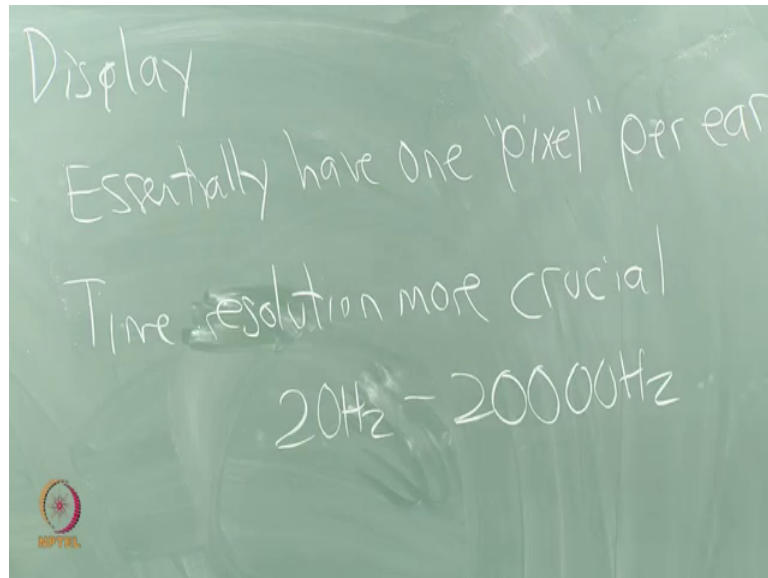 Display
Essentially have one "pixel" per ear
Time resolution more crucial
20Hz - 20000Hz
NPTEL